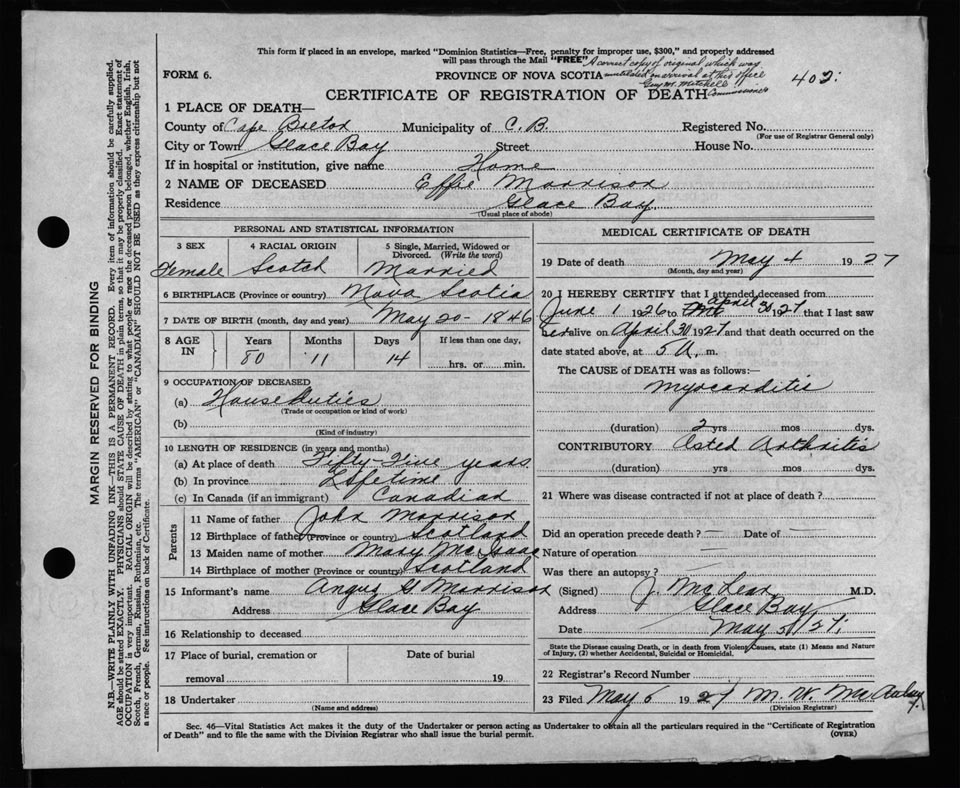 This form if placed in an envelope, marked "Dominion Statistics—Free, penalty for improper use, $300," and properly addressed
will pass through the Mail "FREE" A correct copy of original which was
FORM 6. PROVINCE OF NOVA SCOTIA on arrival at this office 402.
Geo. M. Mitchell
CERTIFICATE OF REGISTRATION OF DEATH Commissioner
1 PLACE OF DEATH—
County of Cape Breton Municipality of C. B. Registered No.
(For use of Registrar General only)
City or Town Glace Bay Street House No.
If in hospital or institution, give name Home
2 NAME OF DECEASED Effie Morrison
Residence Glace Bay.
(Usual place of abode)
PERSONAL AND STATISTICAL INFORMATION
3 SEX 4 RACIAL ORIGIN 5 Single, Married, Widowed or
Divorced. (Write the word)
Female Scotch Married
6 BIRTHPLACE (Province or country) Nova Scotia
7 DATE OF BIRTH (month, day and year) May 20 - 1846
8 AGE IN Years Months Days If less than one day,
80 11 14 hrs. or min.
9 OCCUPATION OF DECEASED
(a) House Duties
(Trade or occupation or kind of work)
(b)
(Kind of industry)
10 LENGTH OF RESIDENCE (in years and months)
(a) At place of death Fifty-Five years
(b) In province Lifetime
(c) In Canada (if an immigrant) Canadian
Parents
11 Name of father John Morrison
12 Birthplace of father (Province or country) Scotland
13 Maiden name of mother Mary McIsaac
14 Birthplace of mother (Province or country) Scotland
15 Informant's name Angus G Morrison
Address Glace Bay
16 Relationship to deceased
17 Place of burial, cremation or Date of burial
removal 19
18 Undertaker
(Name and address)
MEDICAL CERTIFICATE OF DEATH
19 Date of death May 4 1927
(Month, day and year)
20 I HEREBY CERTIFY that I attended deceased from
June 1 1926 to April 30 1927 that I last saw
her alive on April 30 1927 and that death occurred on the
date stated above, at 5 A. m.
The CAUSE of DEATH was as follows:
Myocarditis
(duration) 2 yrs mos dys.
CONTRIBUTORY Arthritis
(duration) yrs mos dys.
21 Where was disease contracted if not at place of death?
Did an operation precede death? — Date of —
Nature of operation —
Was there an autopsy?
(Signed) J. McLean M.D.
Address Glace Bay
Date May 5/27
State the Disease causing Death, or in death from Violent Causes, state (1) Means and Nature
of Injury, (2) whether Accidental, Suicidal or Homicidal.
22 Registrar's Record Number
23 Filed May 6 1927 M. W. McAulay
(Division Registrar)
Sec. 46—Vital Statistics Act makes it the duty of the Undertaker or person acting as Undertaker to obtain all the particulars required in the "Certificate of Registration
of Death" and to file the same with the Division Registrar who shall issue the burial permit. (OVER)
MARGIN RESERVED FOR BINDING
N.B.—WRITE PLAINLY WITH UNFADING INK—THIS IS A PERMANENT RECORD. Every item of information should be carefully supplied.
AGE should be stated EXACTLY. PHYSICIANS should STATE CAUSE OF DEATH in plain terms, so that it may be properly classified. Exact statement of
OCCUPATION is very important. RACIAL ORIGIN will be described by stating to what people or race the deceased person belonged, whether English, Irish,
Scotch, French, German, Russian, Ruthenian, etc. The terms "AMERICAN" or "CANADIAN" SHOULD NOT BE USED as they express citizenship but not
a race or people. See instructions on back of Certificate.